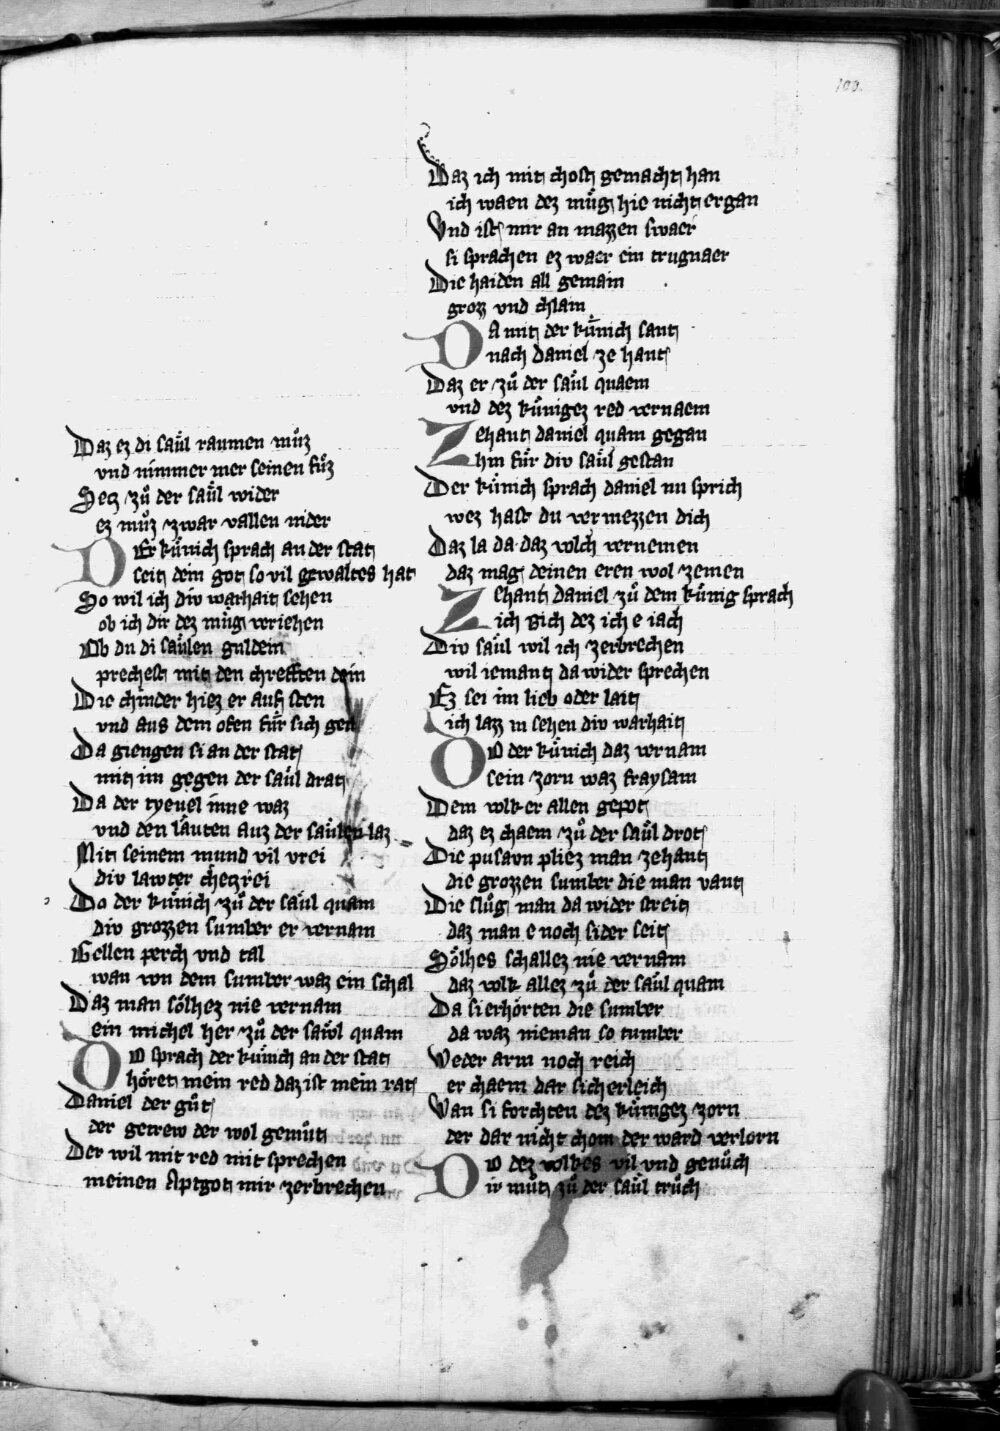 Daz ez di saͤul raumen muͦz
vnd nimmer mer seinen fuͦz
Setz zuͦ der saͤul wider
ez muͦz zwar vallen nider
DEr kuͤnich sprach an der stat
seit dein got so vil gewaltes hat
So wil ich div warhait sehen
ob ich dir dez muͤg veriehen
Ob du di saͤulen guldein
prechest mit den chrefften dein
Die chinder hiez er auf sten
vnd aus dem ofen fuͤr sich gen
Da giengen si an der stat
mit im gegen der saͤul drat
Da der tyeuel inne waz
vnd den laͤuten auz der saͤulen laz
Mit seinem mund vil vrei
div lawter chetzrei
Do der kuͤnich zuͦ der saͤul quam
div grozzen sumber er vernam
Hellen perch vnd tal
wan von dem sumber waz ein schal
Daz man soͤlhez nie vernam
ein michel her zuͦ der saͤwl quam
DO sprach der kuͤnich an der stat
hoͤret mein red daz ist mein rat
Daniel der guͦt
der getrew der wol gemuͦt
Der wil mit red mit sprechen
meinen Aptgot mir zerbrechen
100.
Daz ich mit chost gemacht han
ich waen dez muͤg hie nicht ergan
Vnd ist mir an mazzen swaer
si sprachen ez waer ein trugnaer
Die haiden all gemain
groz vnd chlain
DA mit der kuͤnich sant
nach daniel ze hant
Daz er zuͦ der saͤul quaem
vnd dez kuͤnigez red vernaem
Zehant daniel quam gegan
hin fuͤr div saͤul gestan
Der kuͤnich sprach daniel nu sprich
wez hast du vermezzen dich
Daz la da daz volch vernemen
daz mag deinen eren wol zemen
Zehant daniel zuͦ dem kuͤnig sprach
ich gich dez ich e iach
Div saͤul wil ich zerbrechen
wil iemant da wider sprechen
Ez sei im lieb oder lait
ich lazz in sehen div warhait
DO der kuͤnich daz vernam
sein zorn waz fraysam
Dem volk er allen gepot
daz ez chaem zuͦ der saͤul drot
Die pusavn pliez man zehant
die grozzen sumber die man vant
Die sluͦg man da wider streit
daz man e noch sider seit
Soͤlhes schallez nie vernam
daz volk allez zuͦ der saͤul quam
Da si erhoͤrten die sumber
da waz nieman so tumber
Weder arm noch reich
er chaem dar sicherleich
Wan si forchten dez kuͤnigez zorn
der dar nicht chom der ward verlorn
DO dez volkes vil vnd genuͦch
ir muͦt zuͦ der saͤul truͦch